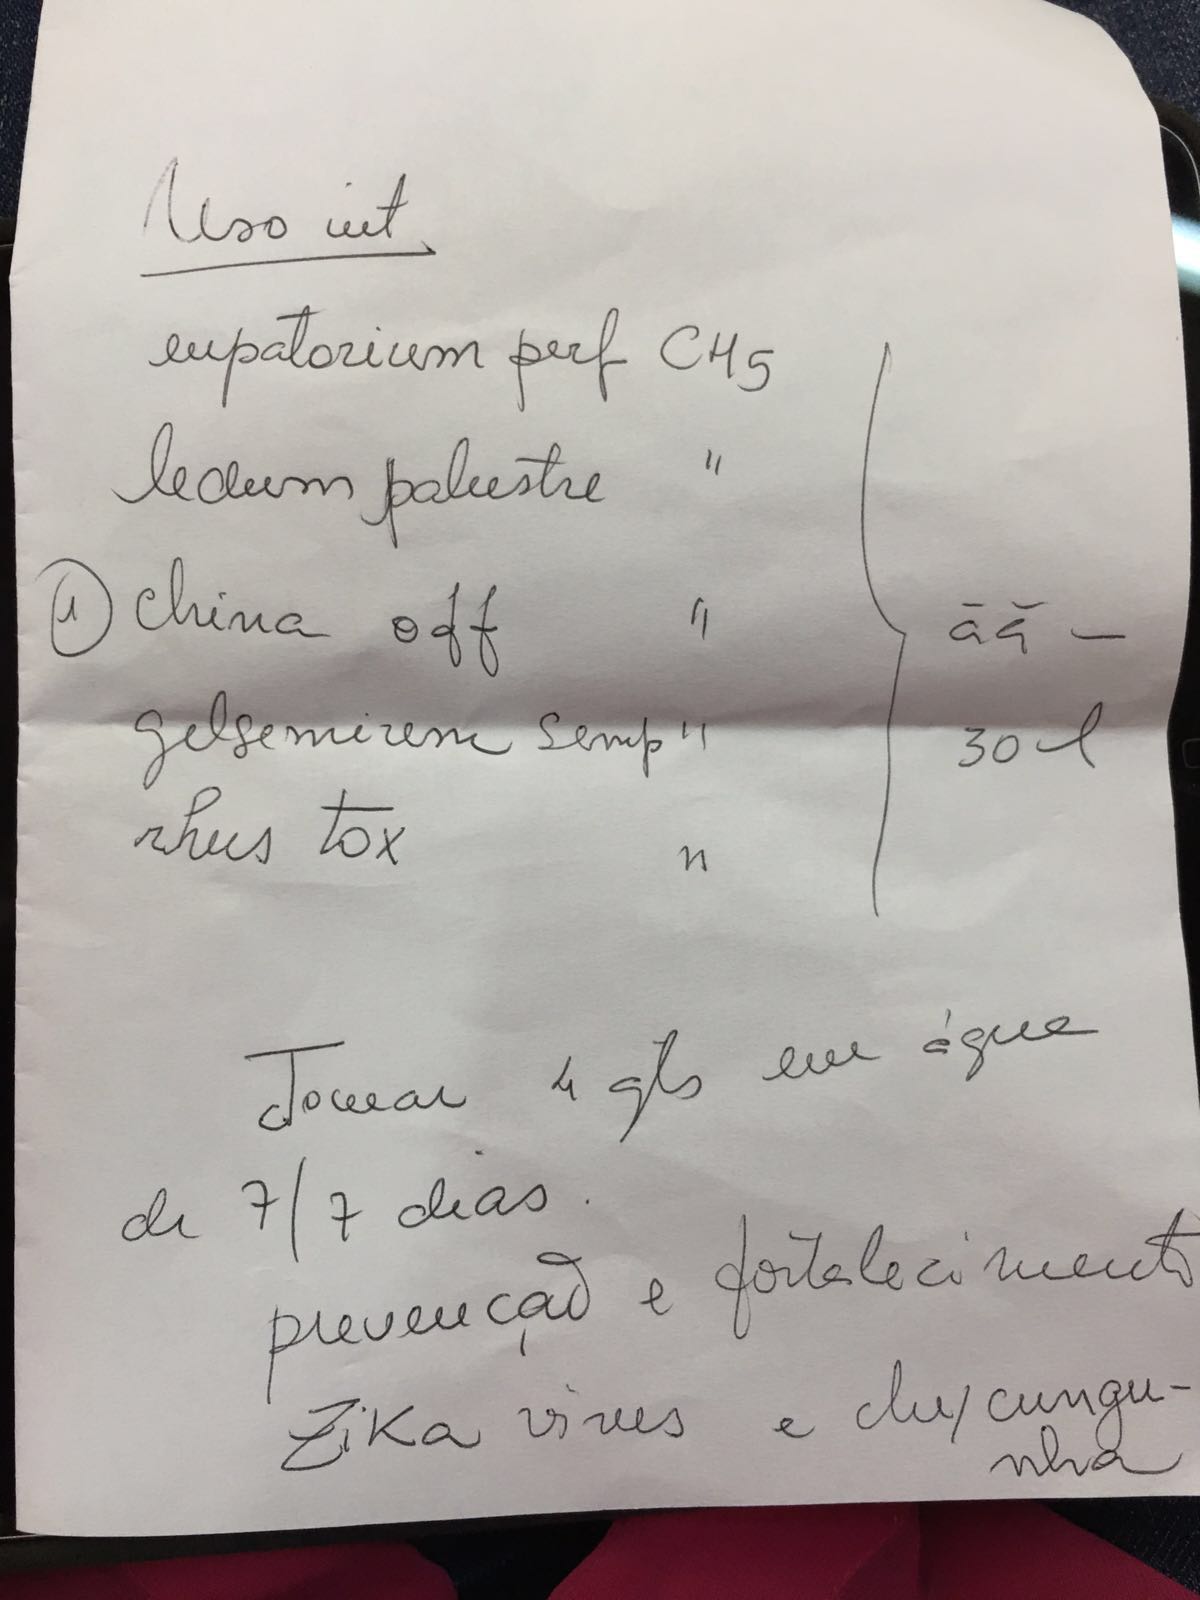 Uso int.
eupatorium perf CH5
ledum palustre "
① china off "
āā —
gelsemium semp "
30
rhus tox "
Tomar 4 gts em água
de 7/7 dias.
prevenção e fortalecimento
Zika virus e
nha